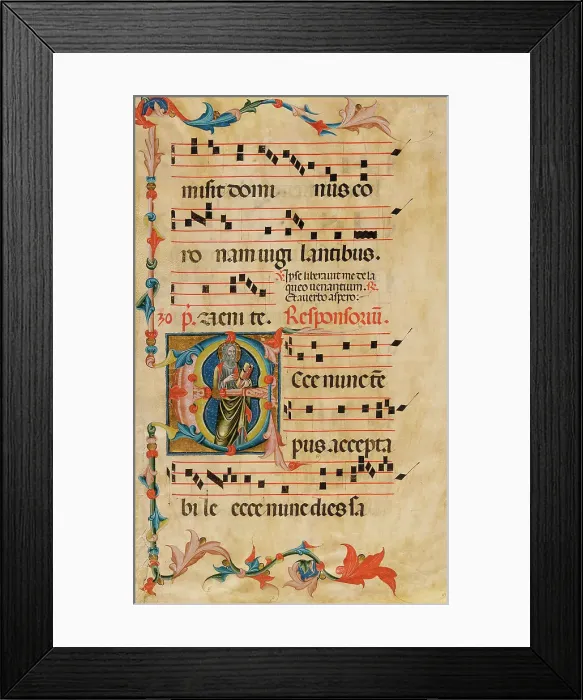 misit domi nus co
ro nam uigi lantibus.
℣. Ipse liberauit me de la
queo uenantium. ℟.
Et a uerbo aspero:~
30 p̃. Raeni te. Responsoriū.
Ecce nunc tē
pus accepta
bi le ecce nunc dies sa